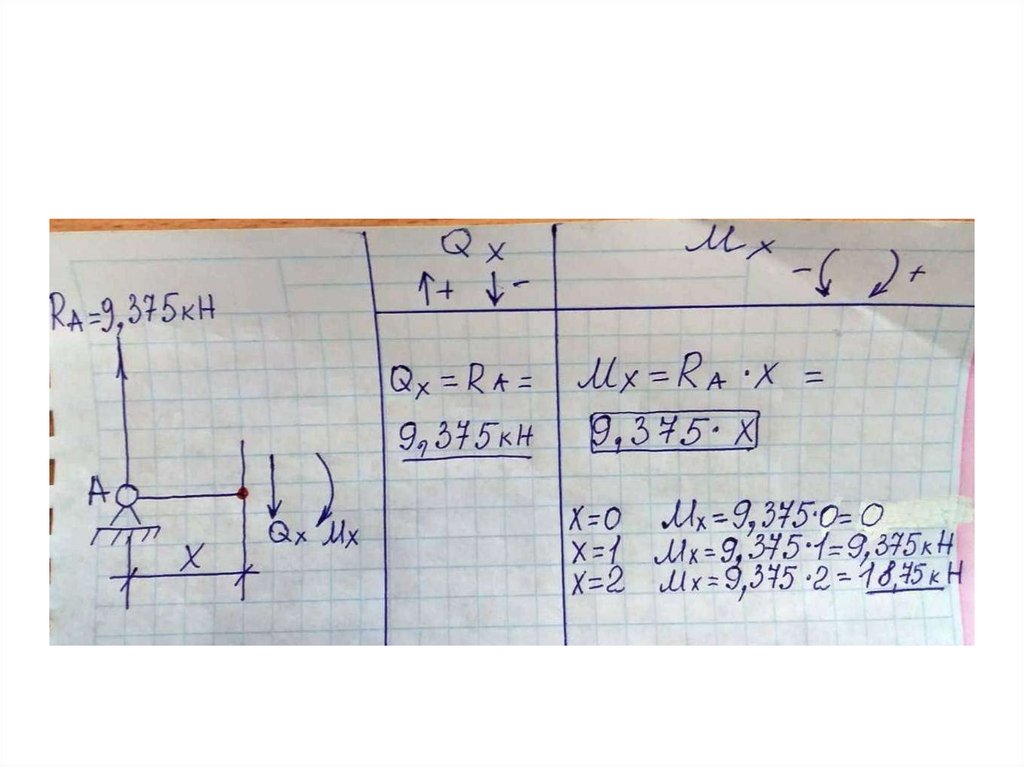 RA=9,375кН
A
X
Qx Mx
Qx
↑+ ↓-
Mx
- +
Qx = RA =
9,375кН
Mx = RA · x =
9,375 · x
x=0 Mx=9,375·0=0
x=1 Mx=9,375·1=9,375кН
x=2 Mx=9,375·2=18,75кН